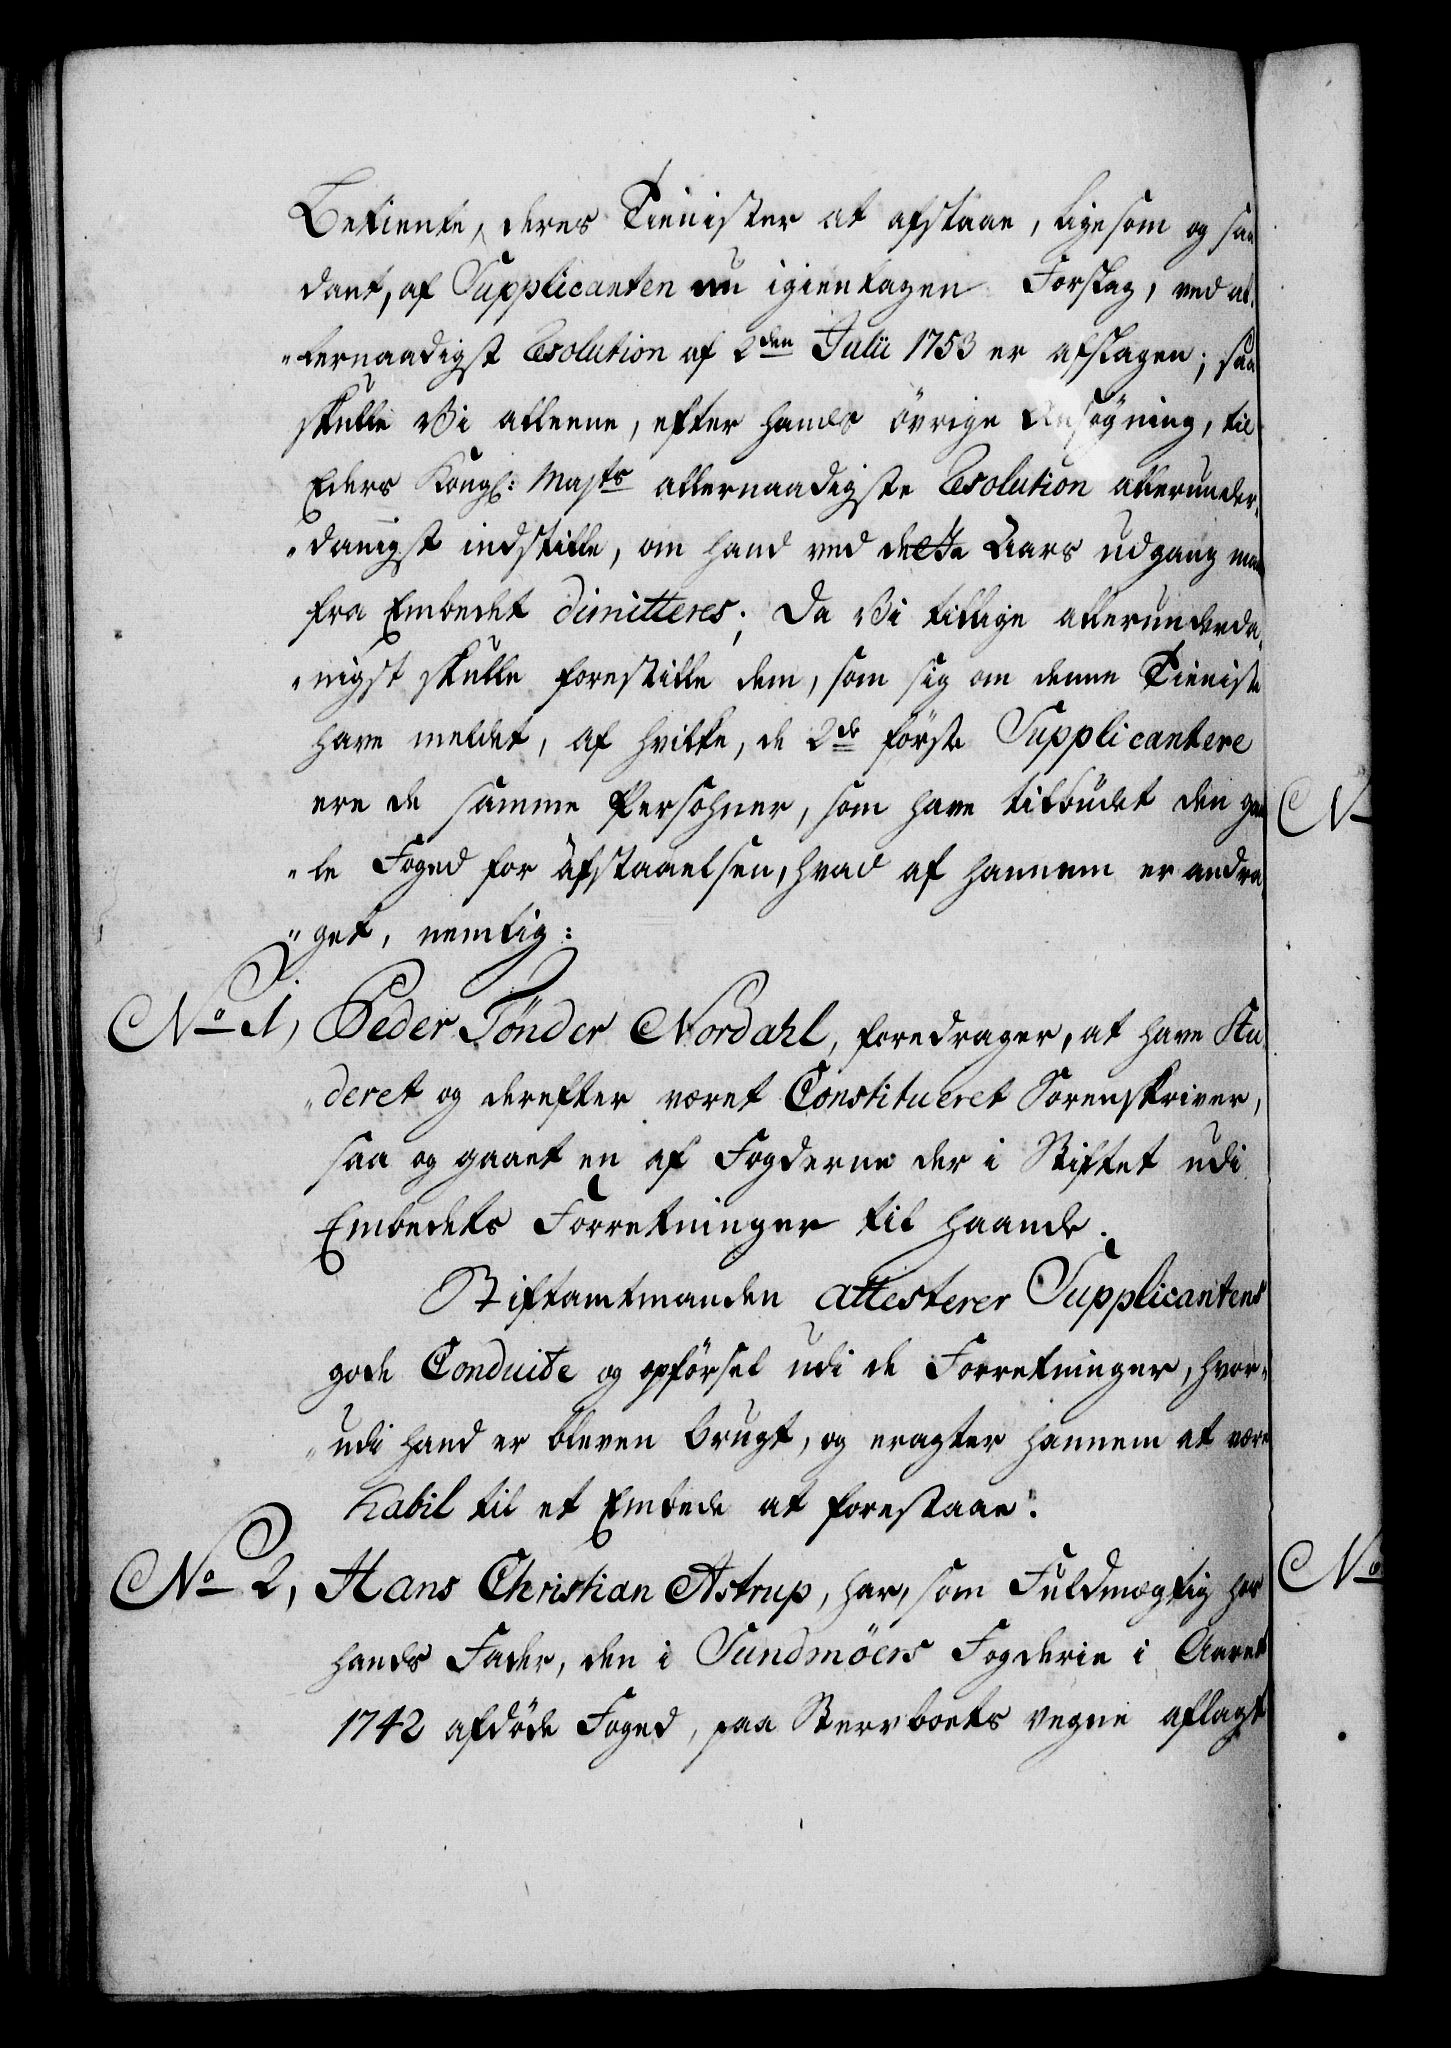 Betiente, deres Tienister at afstaae, ligesom og saa
dant, af Supplicanten nu igientagen Forslag, ved al,
„lernaadigst Resolution af 2den Julii 1753 er afslagen; saa
skulle Vi alleene, efter hands övrige Ansøgning, til
Eders Kongl: Majts allernaadigste Resolution allerunder,
„danigst indstille, om hand ved dette Aars udgang maa
fra Embedet dimitteres; Da Vi tillige allerunderda,
„nigst skulle forestille dem, som sig om denne Tieniste
have meldet, af hvilke, de 2de förste Supplicantere
ere de samme Persohner, som have tilbudet den gam
„le Foged for afstaaelsen, hvad af hannem er andra,
„get, nemlig:
No 1, Peder Tönder Nordahl, foredrager, at have Stu,
„deret og derefter været Constitueret Sorenskriver,
saa og gaaet en af Fogderne der i Stiftet udi
Embedets Forretninger til haande.
Stiftamtmanden attesterer Supplicantens
gode Conduite og opförsel udi de Forretninger, hvor„
„udi hand er bleven brugt, og eragter hannem at være
habil til et Embede at forestaae.
No 2, Hans Christian Astrup, har, som Fuldmægtig hos
hands Fader, den i Sundmöers Fogderie i Aaret
1742 afdöde Foged, paa Stervboets vegne aflagt
No
No